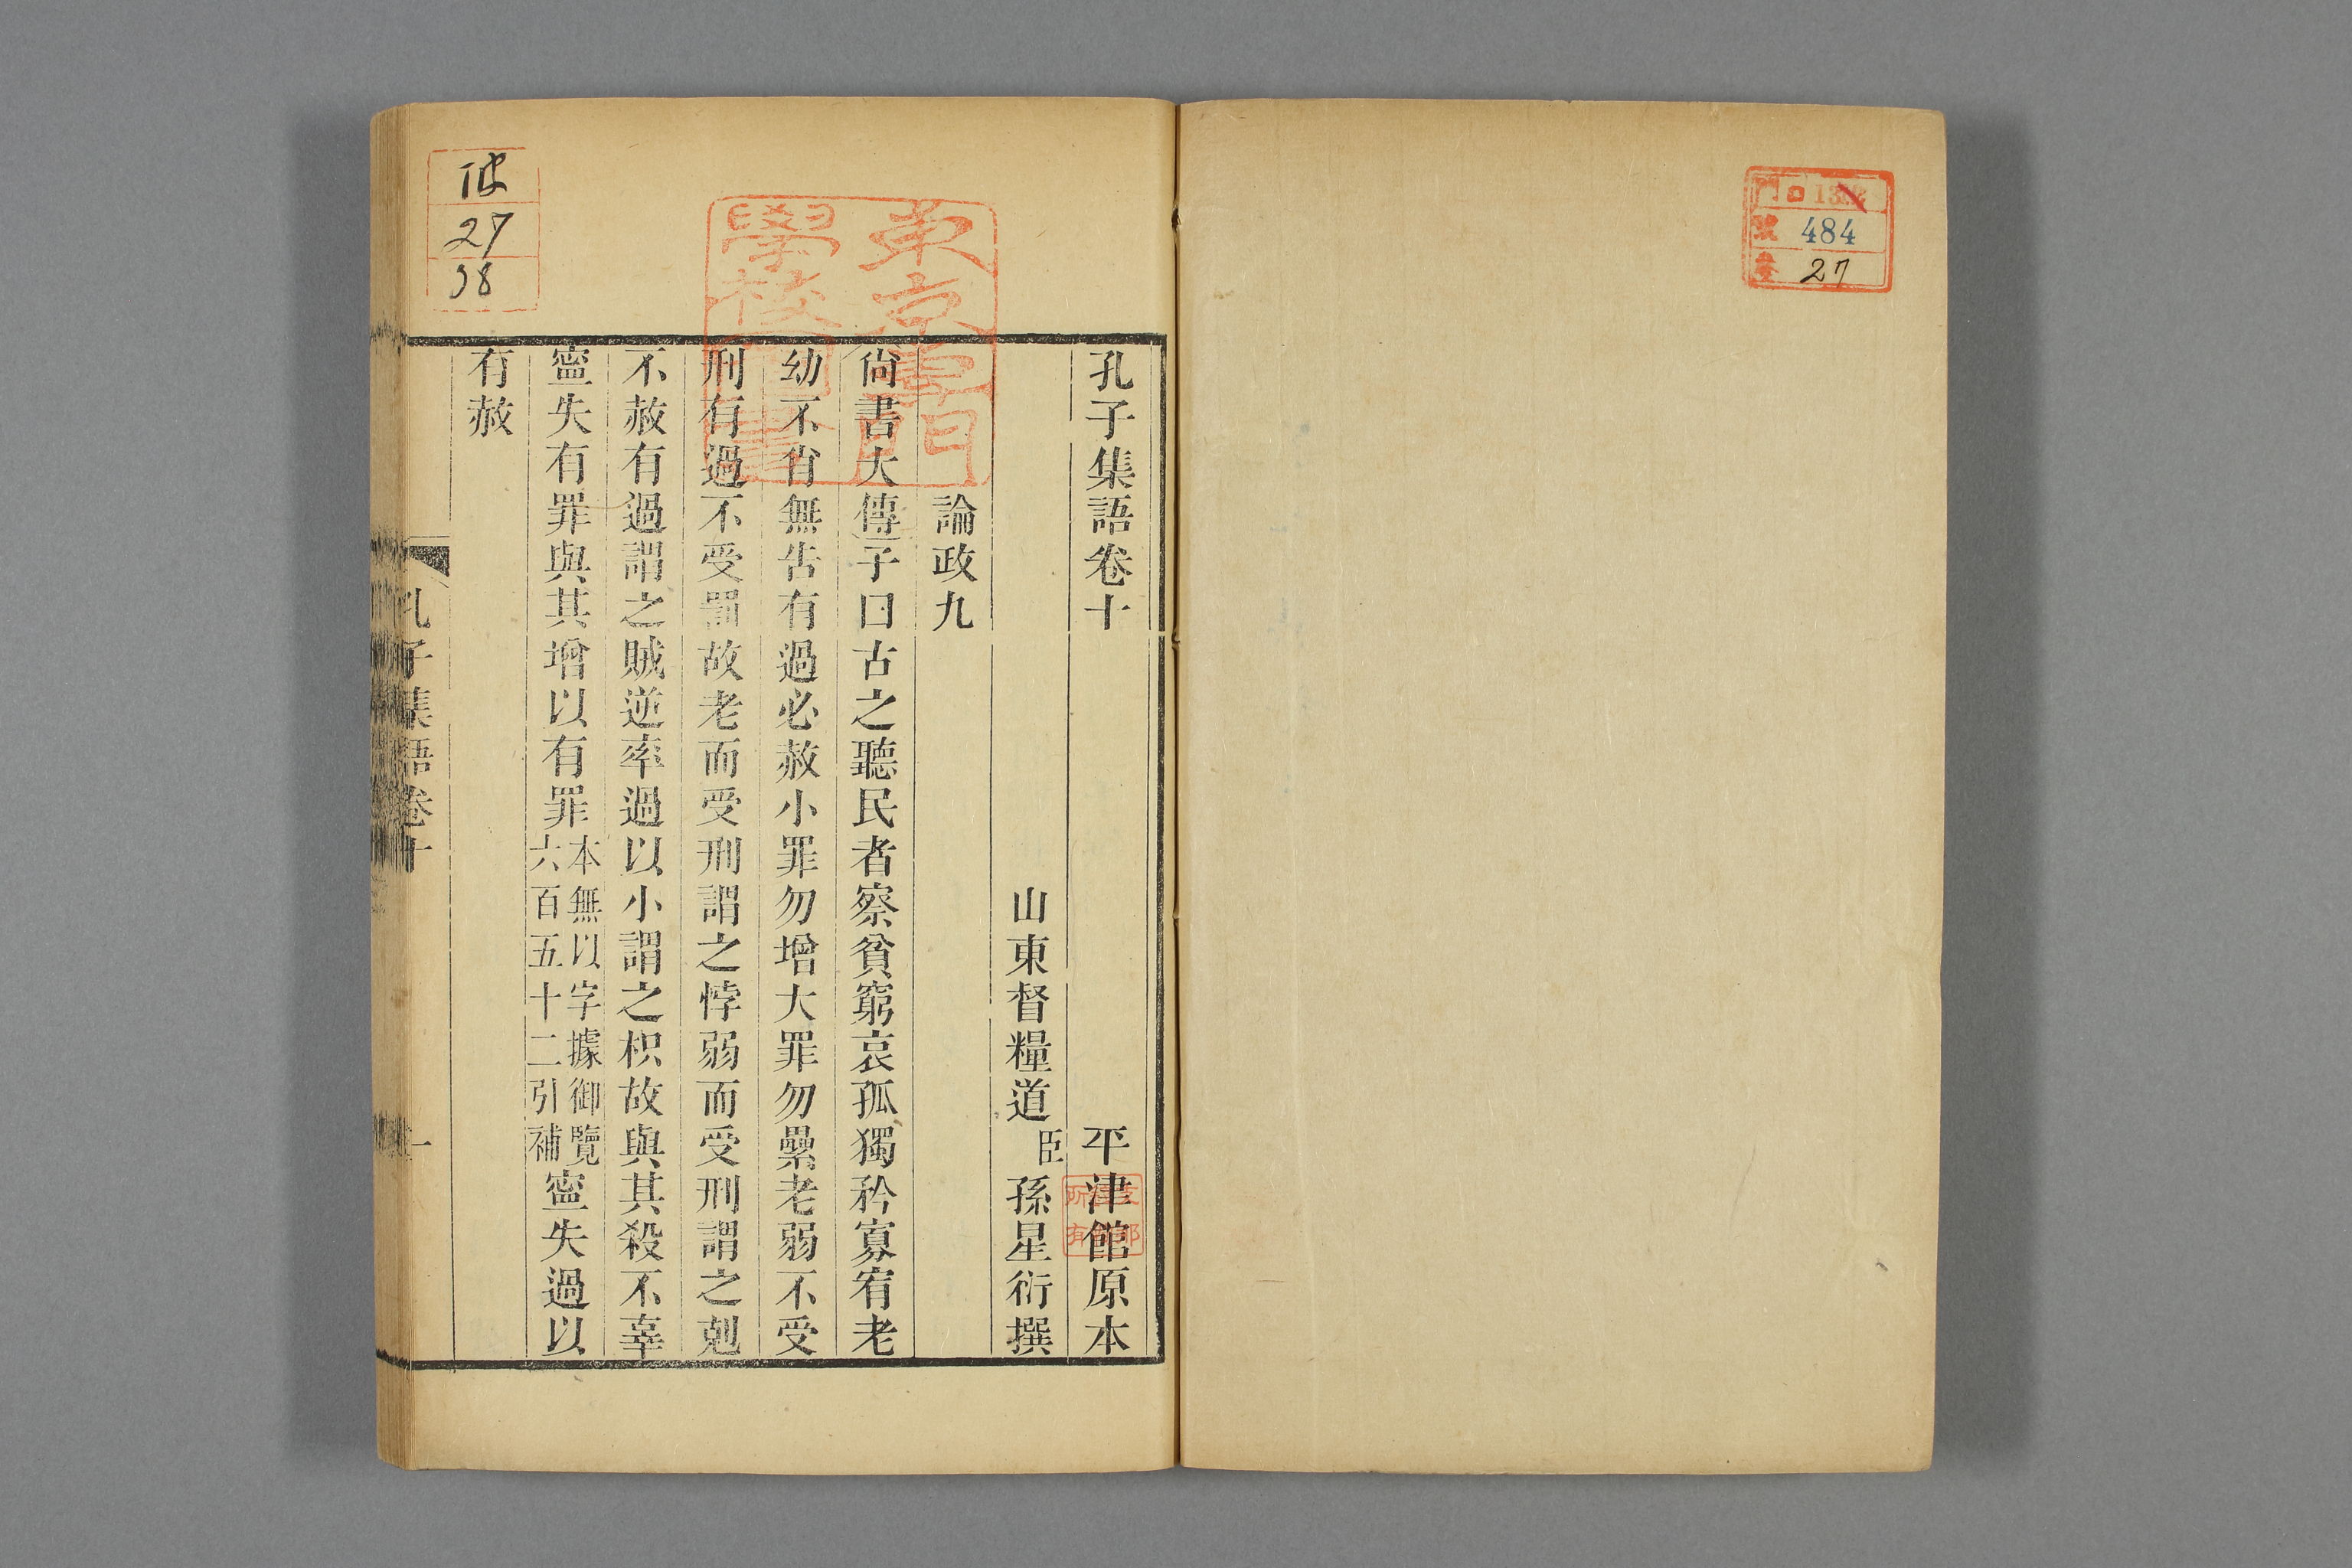 484
27
孔子集語卷十
平津館原本
山東督糧道臣孫星衍撰
論政九
尙書大傳子曰古之聽民者察貧窮哀孤獨矜寡宥老
幼不肖無告有過必赦小罪勿增大罪勿纍老弱不受
刑有過不受罰故老而受刑謂之悖弱而受刑謂之剋
不赦有過謂之賊逆率過以小謂之枳故與其殺不辜
寍失有罪與其增以有罪
本無以字據御覽
六百五十二引補
寍失過以
有赦
孔子集語卷十
一
東京專門
學校圖書
27
38